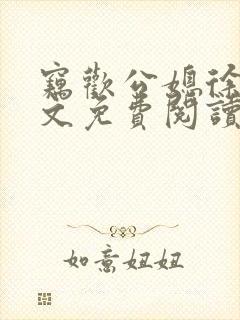 竊歡公媳徐
文免費閱讀
如意妞妞